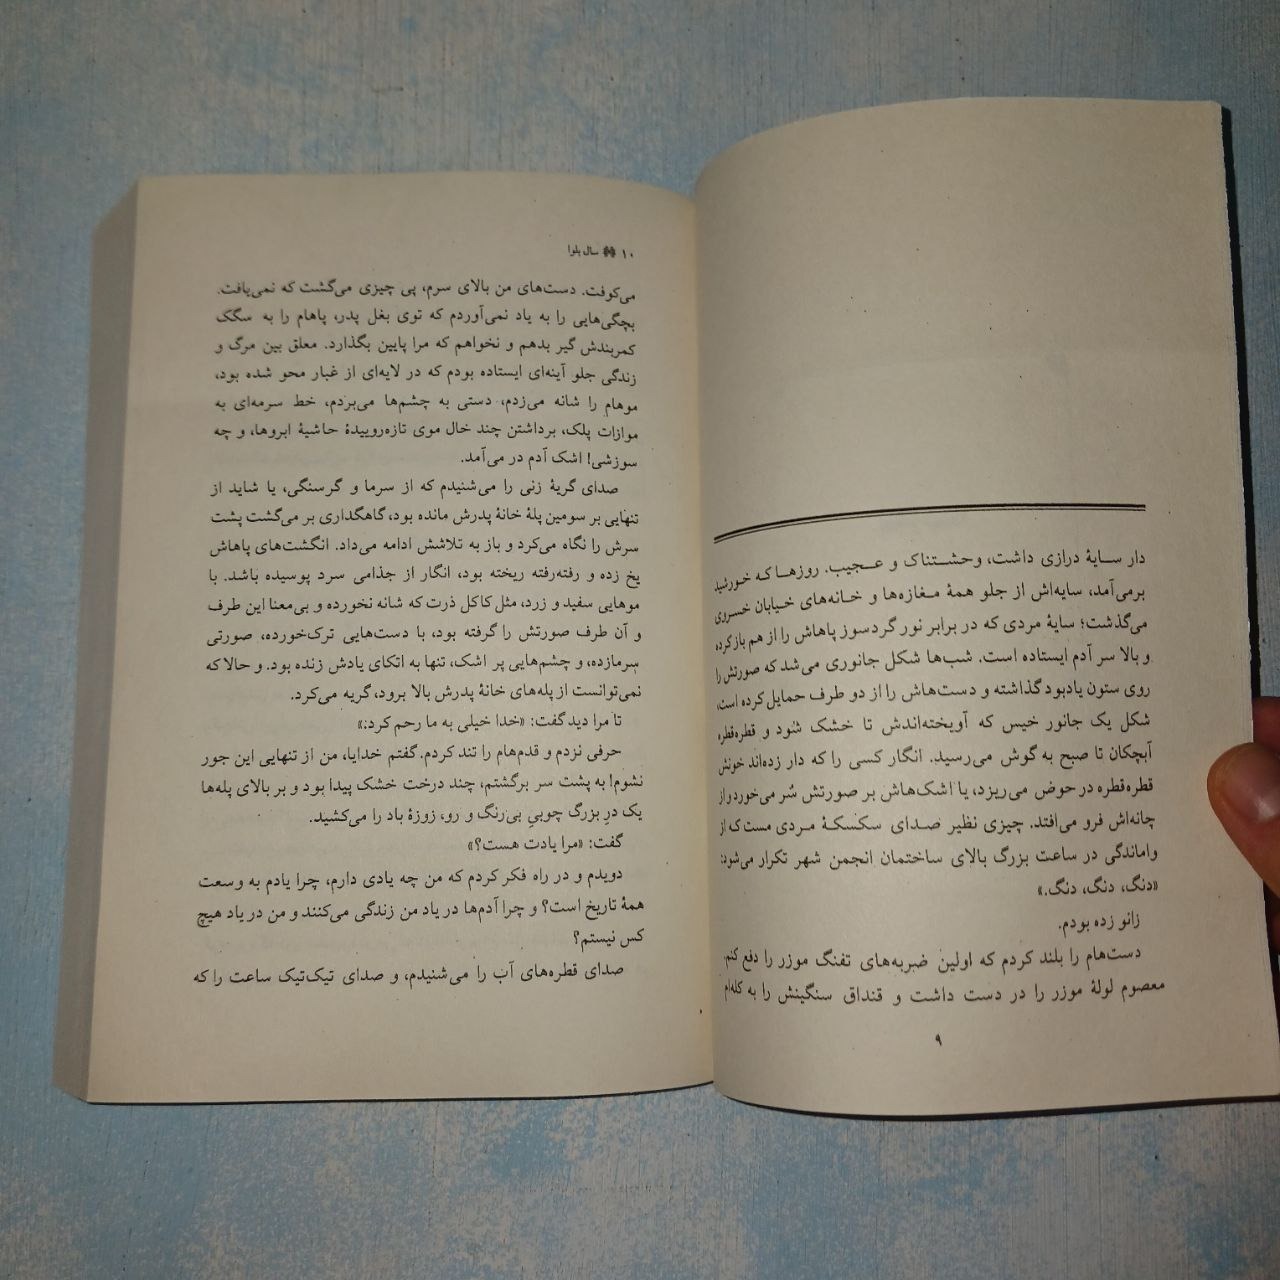 دار سایهٔ درازی داشت، وحشتناک و عجیب. روزها که خورشید
برمی‌آمد، سایه‌اش از جلو همهٔ مغازه‌ها و خانه‌های خیابان خسروی
می‌گذشت؛ سایهٔ مردی که در برابر نور گردسوز پاهاش را از هم باز کرده
و بالا سر آدم ایستاده است. شب‌ها شکل جانوری می‌شد که صورتش را
روی ستون یادبود گذاشته و دست‌هاش را از دو طرف حمایل کرده است،
شکل یک جانور خیس که آویخته‌اندش تا خشک شود و قطره‌قطره
آبچکان تا صبح به گوش می‌رسید. انگار کسی را که دار زده‌اند خونش
قطره‌قطره در حوض می‌ریزد، یا اشک‌هاش بر صورتش سُر می‌خورد و از
چانه‌اش فرو می‌افتد. چیزی نظیر صدای سکسکهٔ مردی مست که از
واماندگی در ساعت بزرگ بالای ساختمان انجمن شهر تکرار می‌شود:
«دنگ، دنگ، دنگ.»
زانو زده بودم.
دست‌هام را بلند کردم که اولین ضربه‌های تفنگ موزر را دفع کنم.
معصوم لولهٔ موزر را در دست داشت و قنداق سنگینش را به کله‌ام
۹
۱۰ سال بلوا
می‌کوفت. دست‌های من بالای سرم، پی چیزی می‌گشت که نمی‌یافت.
بچگی‌هایی را به یاد نمی‌آوردم که توی بغل پدر، پاهام را به سگک
کمربندش گیر بدهم و نخواهم که مرا پایین بگذارد. معلق بین مرگ و
زندگی جلو آینه‌ای ایستاده بودم که در لایه‌ای از غبار محو شده بود،
موهام را شانه می‌زدم، دستی به چشم‌ها می‌بردم، خط سرمه‌ای به
موازات پلک، برداشتن چند خال موی تازه‌روییدهٔ حاشیهٔ ابروها، و چه
سوزشی! اشک آدم در می‌آمد.
صدای گریهٔ زنی را می‌شنیدم که از سرما و گرسنگی، یا شاید از
تنهایی بر سومین پلهٔ خانهٔ پدرش مانده بود، گاهگداری بر می‌گشت پشت
سرش را نگاه می‌کرد و باز به تلاشش ادامه می‌داد. انگشت‌های پاهاش
یخ زده و رفته‌رفته ریخته بود، انگار از جذامی سرد پوسیده باشد. با
موهایی سفید و زرد، مثل کاکل ذرت که شانه نخورده و بی‌معنا این طرف
و آن طرف صورتش را گرفته بود، با دست‌هایی ترک‌خورده، صورتی
سرمازده، و چشم‌هایی پر اشک، تنها به اتکای یادش زنده بود. و حالا که
نمی‌توانست از پله‌های خانهٔ پدرش بالا برود، گریه می‌کرد.
تا مرا دید گفت: «خدا خیلی به ما رحم کرد.»
حرفی نزدم و قدم‌هام را تند کردم. گفتم خدایا، من از تنهایی این جور
نشوم! به پشت سر برگشتم، چند درخت خشک پیدا بود و بر بالای پله‌ها
یک درِ بزرگ چوبیِ بی‌رنگ و رو، زوزهٔ باد را می‌کشید.
گفت: «مرا یادت هست؟»
دویدم و در راه فکر کردم که من چه یادی دارم، چرا یادم به وسعت
همهٔ تاریخ است؟ و چرا آدم‌ها در یاد من زندگی می‌کنند و من در یاد هیچ
کس نیستم؟
صدای قطره‌های آب را می‌شنیدم، و صدای تیک‌تیک ساعت را که